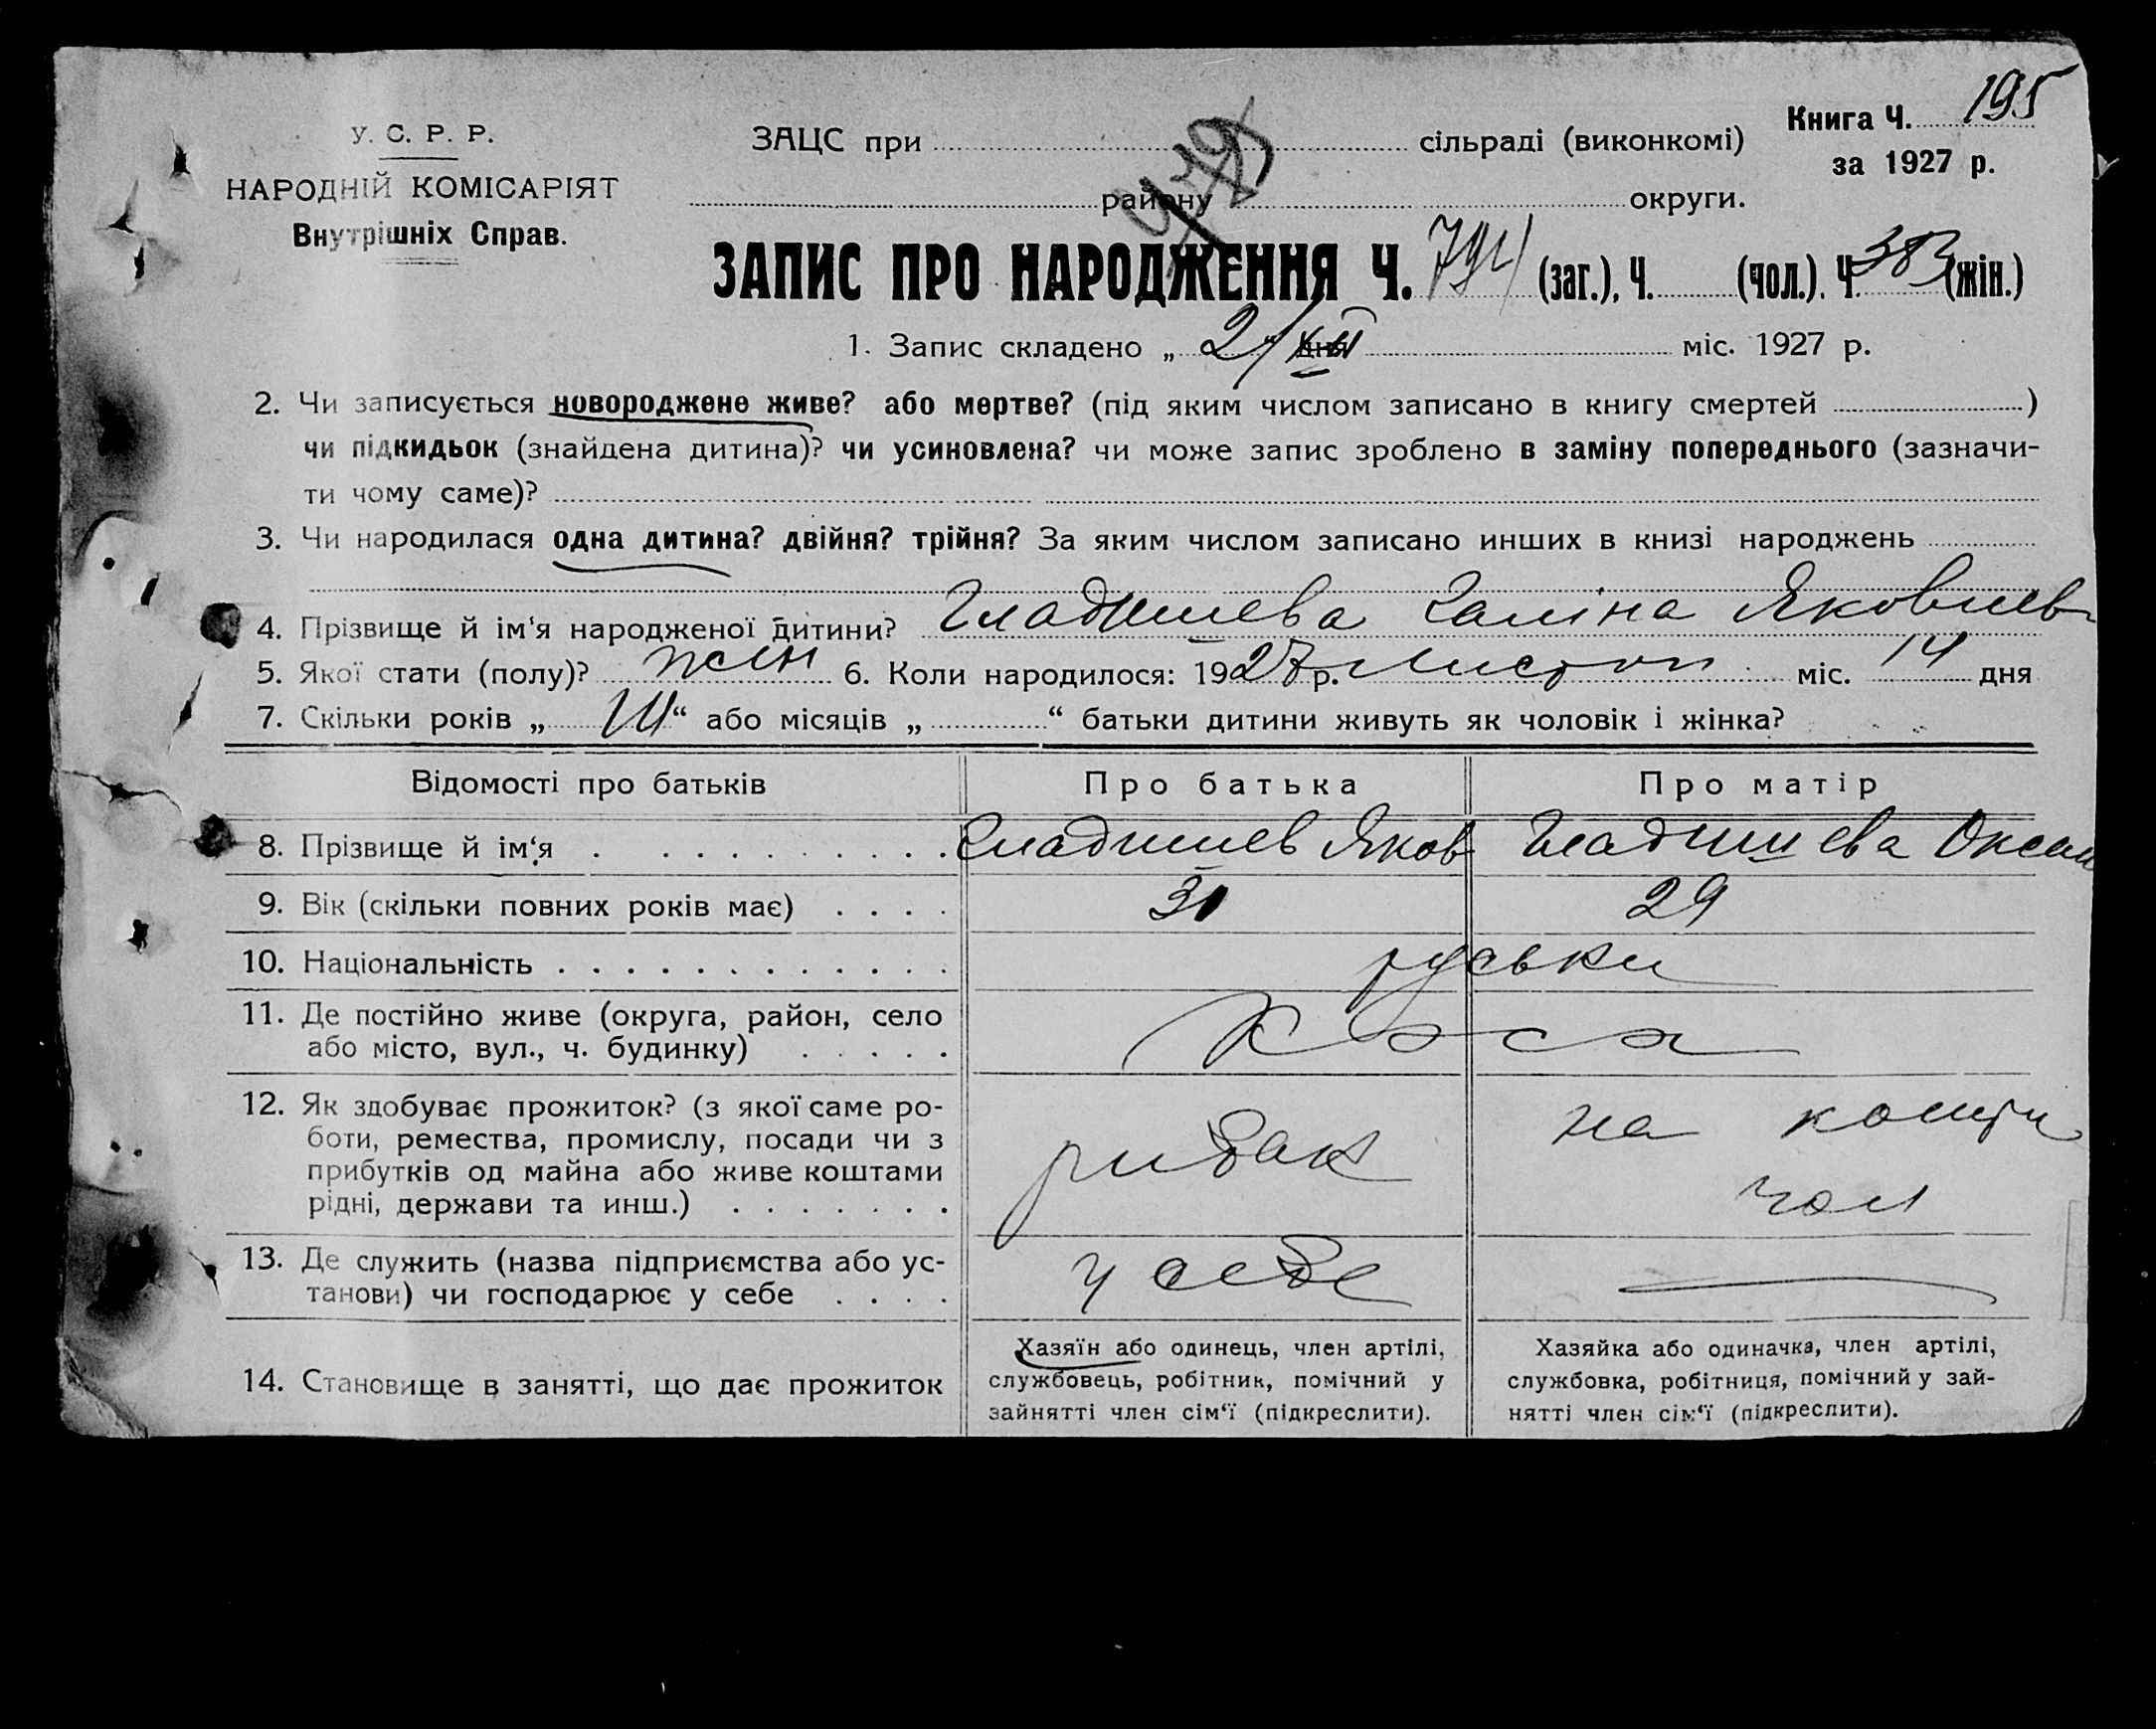 У. С. Р. Р.
НАРОДНІЙ КОМІСАРІЯТ
Внутрішніх Справ.
ЗАЦС при сільраді (виконкомі)
району округи.
Книга Ч. 195
за 1927 р.
ЗАПИС ПРО НАРОДЖЕННЯ Ч. (заг.), Ч. (чол.). Ч. 383 (жін.)
1. Запис складено „ 2/XII “ дня міс. 1927 р.
2. Чи записується новороджене живе? або мертве? (під яким числом записано в книгу смертей )
чи підкидьок (знайдена дитина)? чи усиновлена? чи може запис зроблено в заміну попереднього (зазначи-
ти чому саме)?
3. Чи народилася одна дитина? двійня? трійня? За яким числом записано инших в книзі народжень
4. Прізвище й ім'я народженої дитини? Гладишева Галіна Яковлев
5. Якої стати (полу)? жін 6. Коли народилося: 1927 р. Листоп міс. 14 дня
7. Скільки років „ “ або місяців „ “ батьки дитини живуть як чоловік і жінка?
Відомості про батьків Про батька Про матір
8. Прізвище й ім‘я Гладишев Яков Гладишева Оксан
9. Вік (скільки повних років має) 31 29
10. Національність руськи
11. Де постійно живе (округа, район, село
або місто, вул., ч. будинку) Коса
12. Як здобуває прожиток? (з якої саме ро-
боти, ремества, промислу, посади чи з
прибутків од майна або живе коштами
рідні, держави та инш.)
рибак
на кошти
чол
13. Де служить (назва підприємства або ус-
танови) чи господарює у себе
у себе
14. Становище в занятті, що дає прожиток
Хазяїн або одинець, член артілі,
службовець, робітник, помічний у
зайнятті член сім‘ї (підкреслити).
Хазяйка або одиначка, член артілі,
службовка, робітниця, помічний у зай-
нятті член сім‘ї (підкреслити).